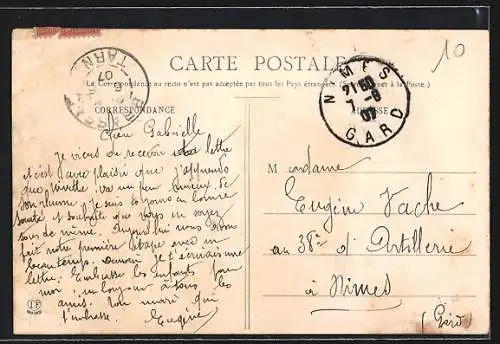 CARTE POSTALE
La Correspondance au recto n'est pas acceptée par tous les Pays étrangers. (Se renseigner à la Poste.)
CORRESPONDANCE
ADRESSE
TARN
07
NIMES
21 50
7 -6
07
GARD
10
Chère Gabrielle
Je viens de recevoir ta lettre
et c'est avec plaisir que j'apprends
que va un peu mieux de
son rhume, je suis toujours en bonne
santé et souhaite que vous en soyez
tous de même. Aujourd'hui nous avons
fait notre première étape avec un
beau temps. Demain je t'écrirai une
lettre. Embrasse les enfants pour
moi, un bonjour à tous les
amis. Ton mari qui
t'embrasse.
Eugène
Madame
Eugène Vache
au 38e d'Artillerie
à Nimes
(Gard)